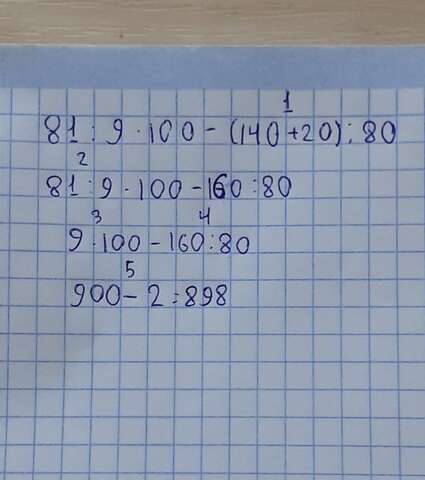 1
81 : 9 · 100 - (140 + 20) : 80
2
81 : 9 · 100 - 160 : 80
3 4
9 · 100 - 160 : 80
5
900 - 2 = 898